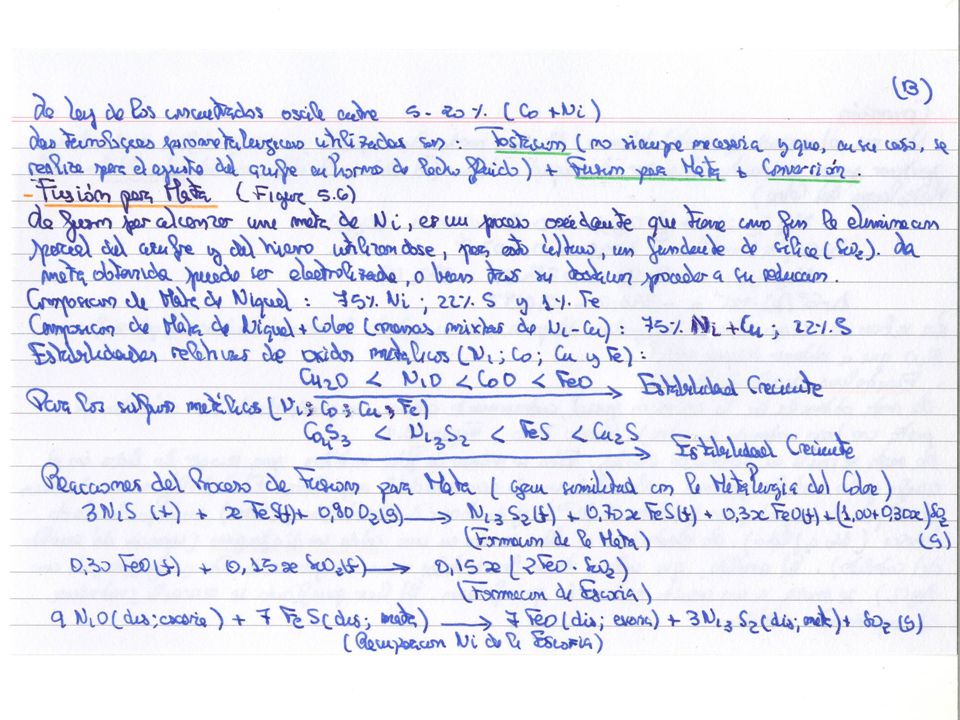 (13)
La ley de los concentrados oscila entre 5-20 %. (Co + Ni)
Las tecnologías pirometalúrgicas utilizadas son: Tostación (no siempre necesaria y que, en su caso, se
realiza para el ajuste del azufre en horno de lecho fluido) + Fusión para Mata + Conversión.
- Fusión para Mata (Figura 5.6)
La fusión para alcanzar una mata de Ni, es un proceso oxidante que tiene como fin la eliminación
parcial del azufre y del hierro utilizandose, para esto último, un fundente de sílice (SiO2). La
mata obtenida puede ser electrolizada, o bien tras su tostación proceder a su reducción.
Composición de Mata de Níquel: 75% Ni; 22% S y 1% Fe
Composición de Mata de Níquel + Cobre (menas mixtas de Ni-Cu): 75% Ni + Cu; 22% S
Estabilidades relativas de oxidos metálicos (Ni; Co; Cu y Fe):
Cu2O < NiO < CoO < FeO → Estabilidad Creciente
Para los sulfuros metálicos (Ni; Co; Cu; Fe)
Co4S3 < Ni3S2 < FeS < Cu2S → Estabilidad Creciente
Reacciones del Proceso de Fusión para Mata (gran similitud con la Metalurgia del Cobre)
3NiS (f) + xFeS(f) + 0,90 O2(g) → Ni3S2(f) + 0,70x FeS(f) + 0,3x FeO(f) + (1,00+0,30x)SO2 (g)
(Formación de la Mata)
0,30 FeO(f) + 0,15x SiO2(f) → 0,15x (2FeO·SiO2)
(Formación de Escoria)
9 NiO (dis; escoria) + 7 FeS (dis; mata) → 7 FeO (dis; escoria) + 3Ni3S2 (dis; mata) + SO2 (g)
(Recuperación Ni de la Escoria)